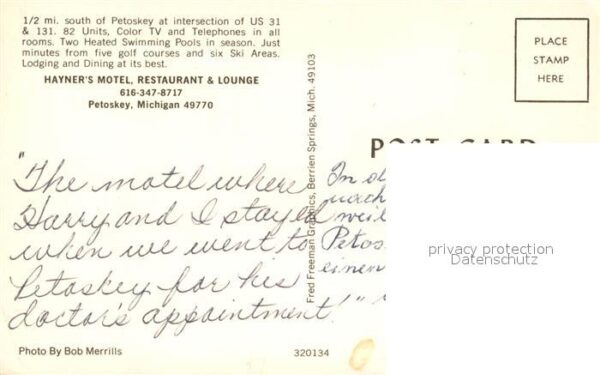 1/2 mi. south of Petoskey at intersection of US 31
& 131. 82 Units, Color TV and Telephones in all
rooms. Two Heated Swimming Pools in season. Just
minutes from five golf courses and six Ski Areas.
Lodging and Dining at its best.
HAYNER'S MOTEL, RESTAURANT & LOUNGE
616-347-8717
Petoskey, Michigan 49770
"The motel where
Harry and I stayed
when we went to
Petoskey for his
doctor's appointment!"
Photo By Bob Merrills
320134
Fred Freeman Graphics, Berrien Springs, Mich. 49103
PLACE
STAMP
HERE
POST CARD
In
weil
Petos
einen
privacy protection
Datenschutz